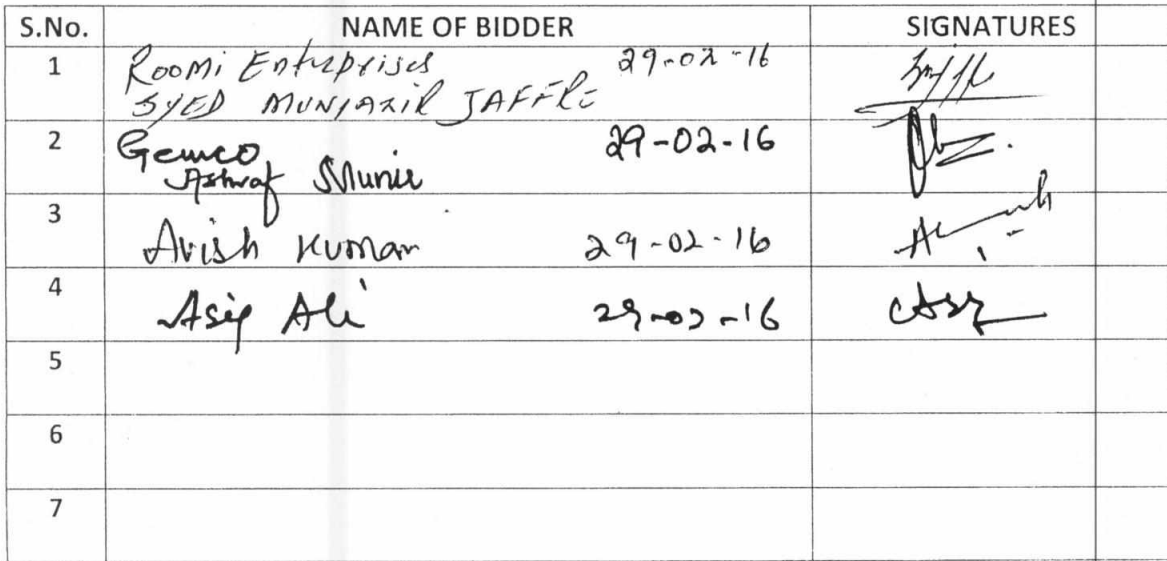 S.No. NAME OF BIDDER SIGNATURES
1 Roomi Enterprises 29-02-16
SYED MUNTAZIR JAFFRI
2 Gemco 29-02-16
Ashraf Munir
3 Avish Kumar 29-02-16
4 Asif Ali 29-02-16
5
6
7